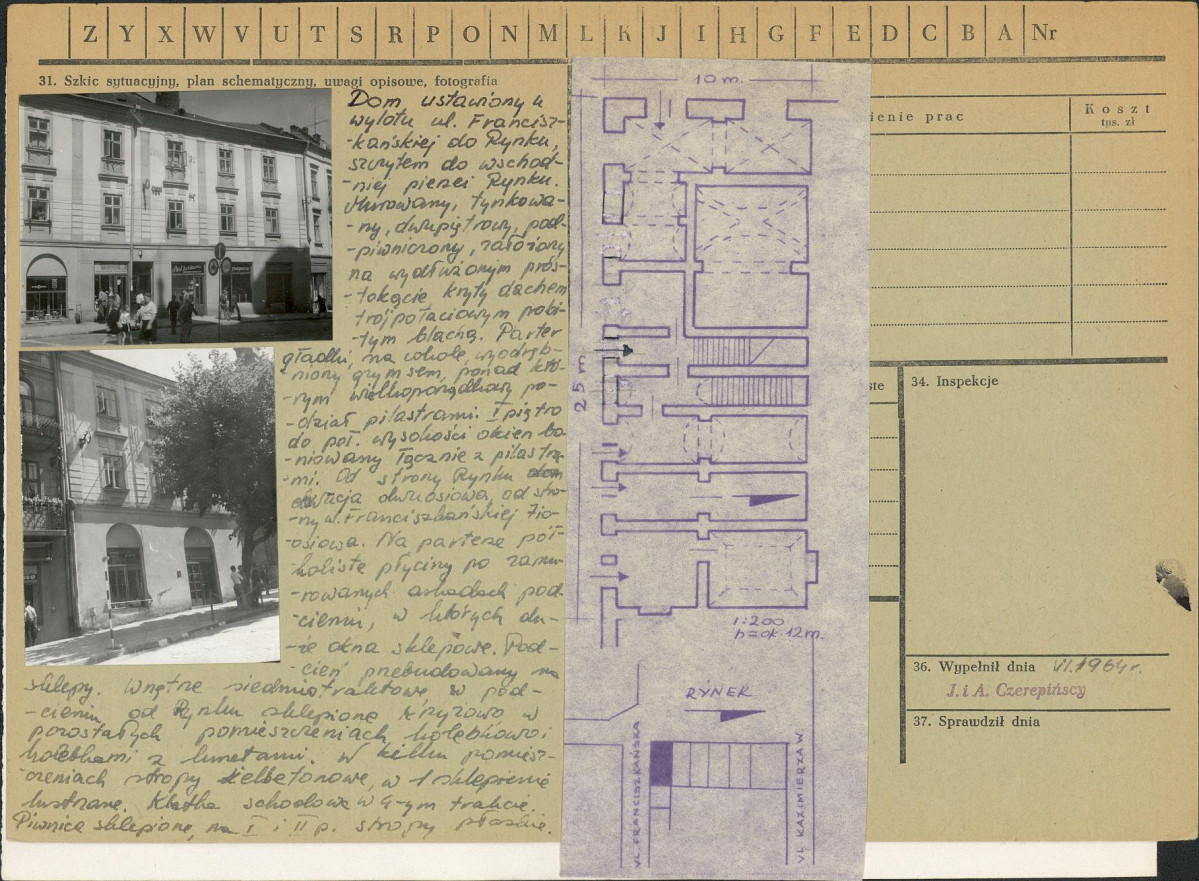 Z Y X W V U T S R P O N M L K J I H G F E D C B A Nr
31. Szkic sytuacyjny, plan schematyczny, uwagi opisowe, fotografia
Dom, ustawiony u
wylotu ul. Francisz-
-kańskiej do Rynku,
szczytem do wschod-
-niej pierzei Rynku.
Murowany, tynkowa-
-ny, dwupiętrowy, pod-
-piwniczony, założony
na wydłużonym pros-
-tokącie kryty dachem
trójpołaciowym pobi-
-tym blachą. Parter
gładki, na cokole, wyodręb-
-niony gzymsem, ponad któ-
-rym wielkoporządkowy po-
-dział pilastrami. I piętro
do poł. wysokości okien bo-
-niowany łącznie z pilastra-
-mi. Od strony Rynku
elewacja dwuosiowa, od stro-
-ny ul. Franciszkańskiej
-osiowa. Na parterze pół-
-koliste płyciny po zamu-
-rowanych arkadach pod-
-cieni, w których du-
-że okna sklepowe. Pod-
-cień przebudowany na
sklepy. Wnętrze siedmiotraktowe, w pod-
-cieniu od Rynku sklepione krzyżowo, w
pozostałych pomieszczeniach kolebkowo i
kolebkami z lunetami. W kilku pomiesz-
-czeniach stropy żelbetonowe, w 1 sklepienie
lustrzane. Klatka schodowa w 4-ym trakcie.
Piwnice sklepione, na I i II p. stropy płaskie.
10 m.
25 m
1:200
h=ok. 12m.
RYNEK
UL. FRANCISZKAŃSKA
UL. KAZIMIERZA W.
ienie prac
Koszt
tys. zł
ste
34. Inspekcje
36. Wypełnił dnia VI.1964r.
J. i A. Czerepińscy
37. Sprawdził dnia